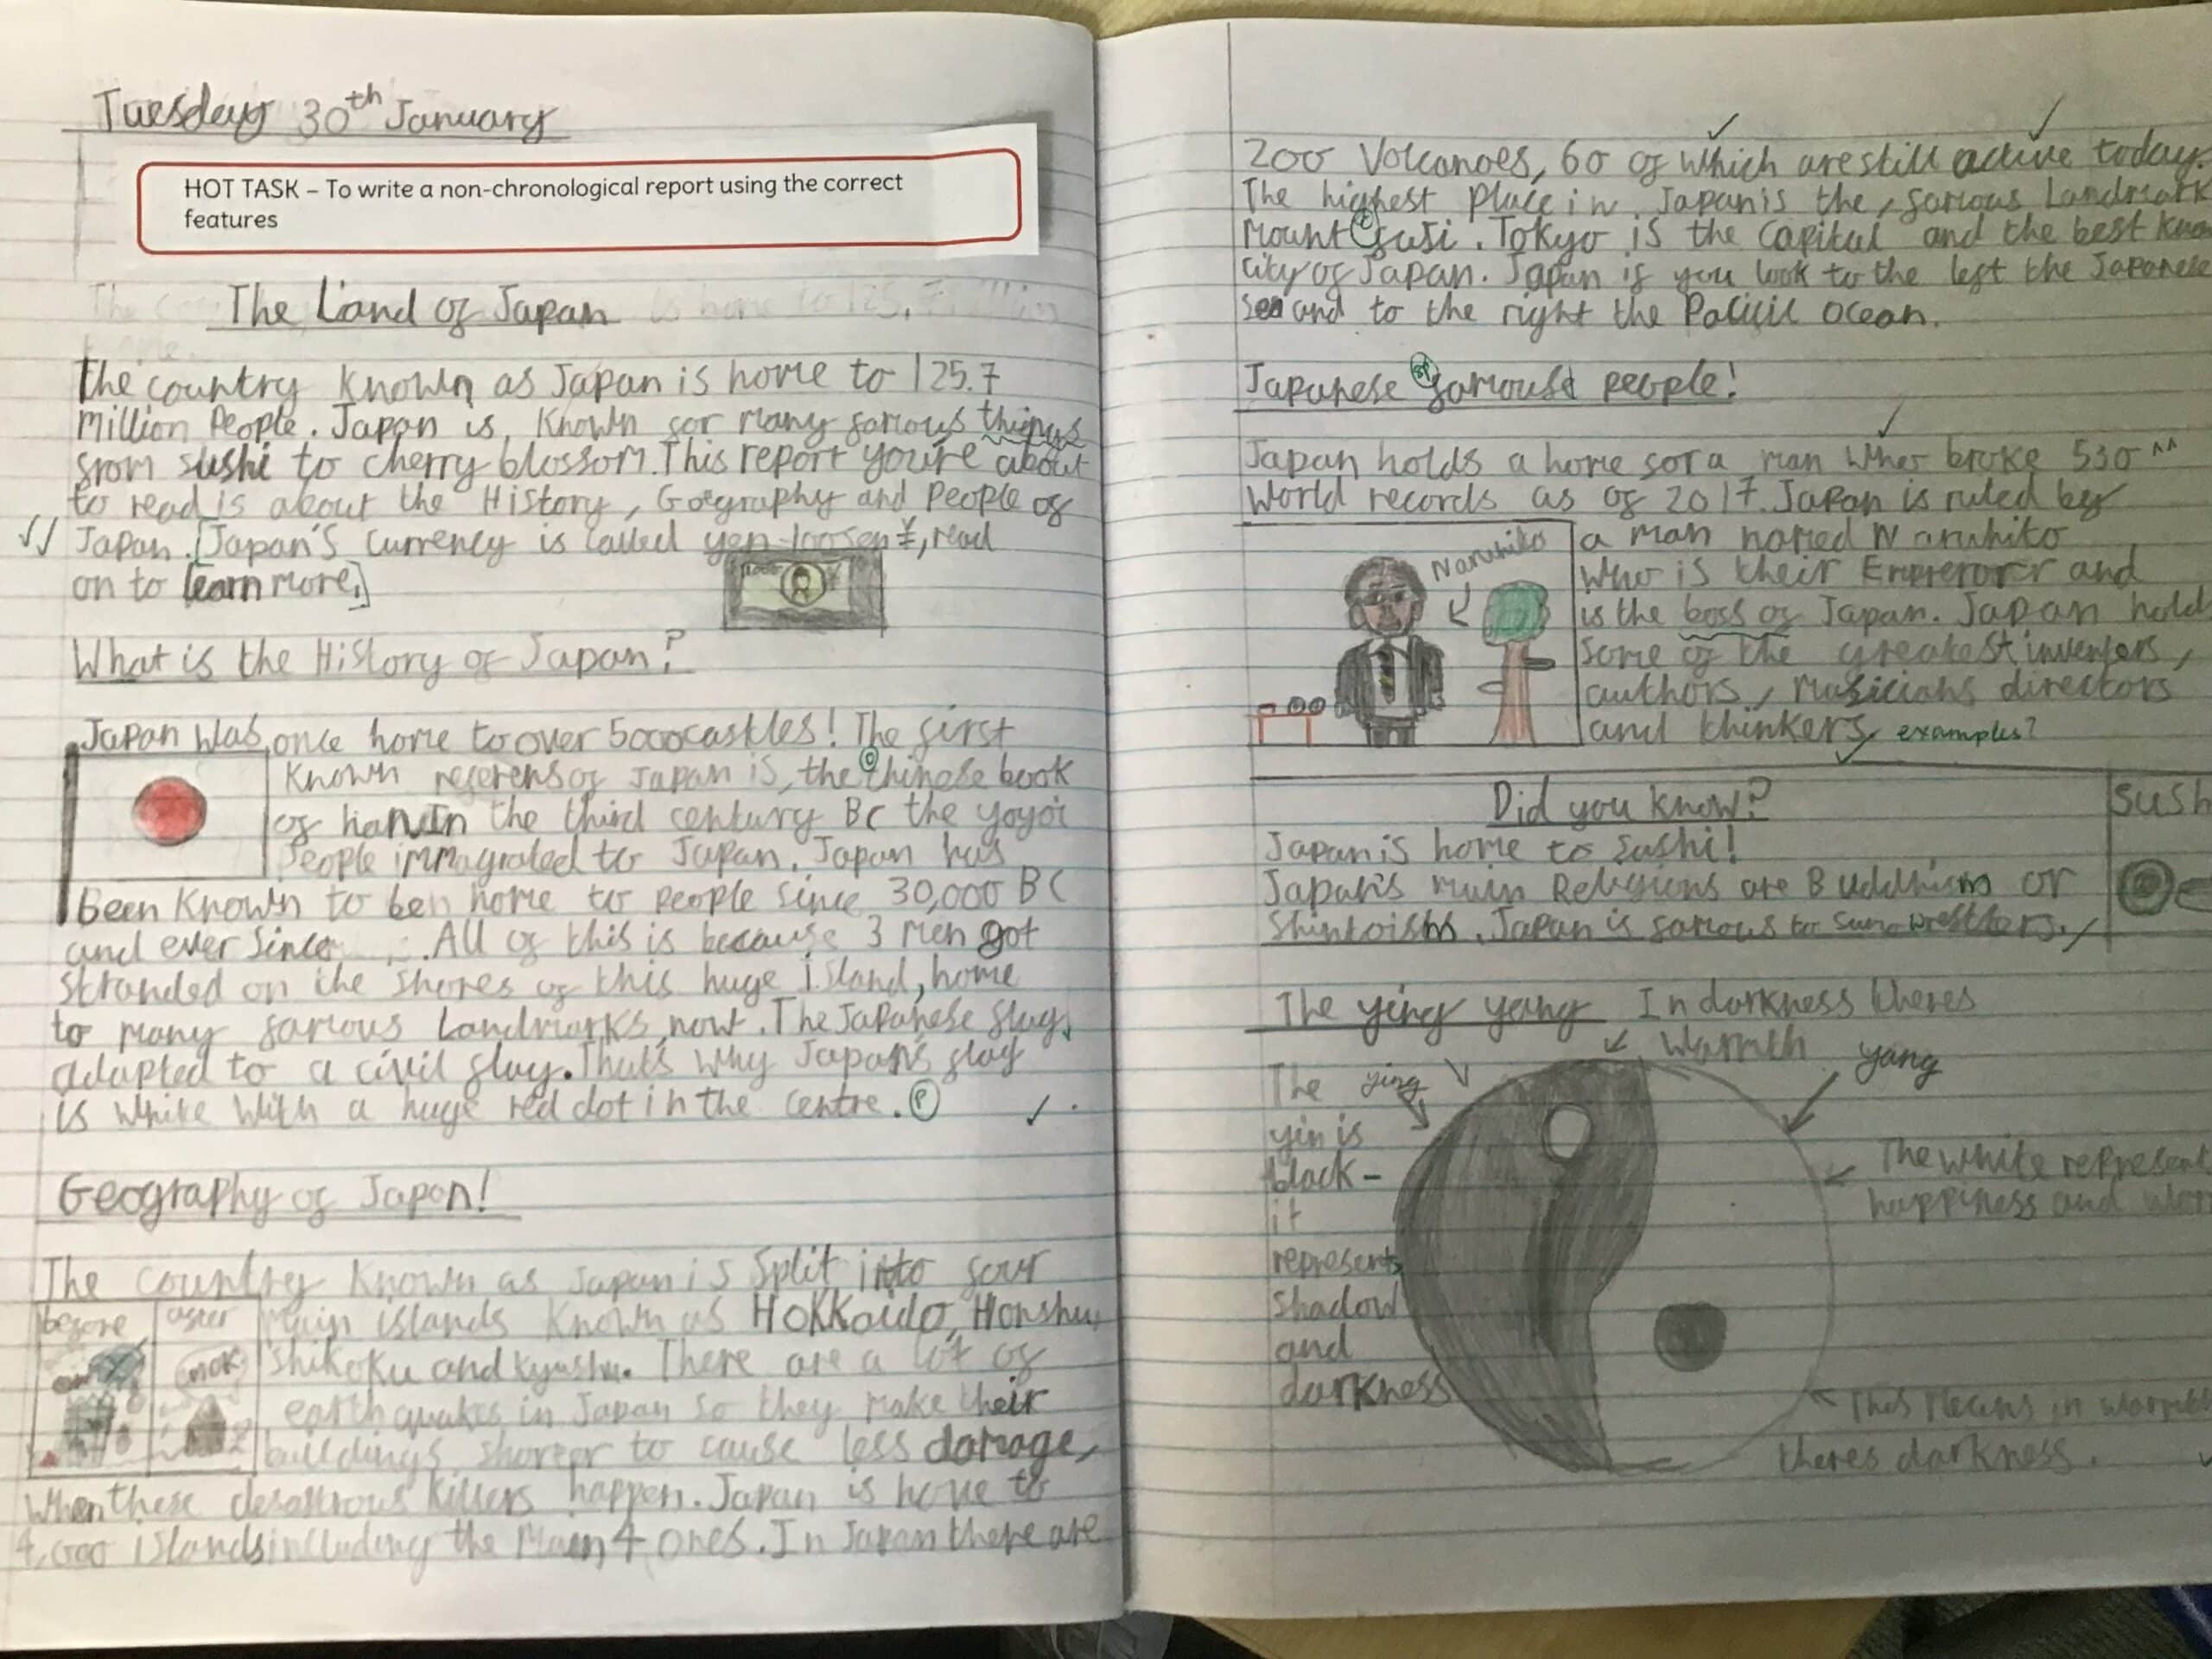 Tuesday 30th January
HOT TASK – To write a non-chronological report using the correct
features
The Land of Japan
The country known as Japan is home to 125.7
million People. Japan is known for many famous things
from sushi to cherry blossom. This report you're about
to read is about the History, Geography and People of
Japan. [Japan's currency is called yen ¥, read
on to learn more.]
What is the History of Japan?
Japan was once home to over 5000 castles! The first
known referens of Japan is, the chinese book
of han. In the third century BC the yoyoi
People immagrated to Japan. Japan has
been known to be home to people since 30,000 BC
and ever since. All of this is because 3 men got
stranded on the shores of this huge island, home
to many famous Landmarks, now. The Japanese flag,
adapted to a civil flag. That's why Japan's flag
is white with a huge red dot in the centre. P
Geography of Japan!
The country known as Japan is split into four
before after
main islands known as Hokkaido, Honshu,
shikoku and kyushu. There are a lot of
earthquakes in Japan so they make their
buildings shorter to cause less damage,
when these desastrous killers happen. Japan is home to
4,000 islands including the main 4 ones. In Japan there are
200 Volcanoes, 60 of which are still active today.
The highest place in Japan is the, famous Landmark
Mount fuji. Tokyo is the capital and the best
city of Japan. Japan if you look to the left the Japanese
sea and to the right the Pacific Ocean.
Japanese sp famous people!
Japan holds a home for a man who broke 530
world records as of 2017. Japan is ruled by
a man named Naruhiko
who is their Emperor and
is the boss of Japan. Japan hold
some of the greatest inventers,
authors, musicians directors
and thinkers, examples?
Naruhiko
Did you know?
Japan is home to Sushi!
Japan's main Religions are Buddhism or
Shintoism. Japan is famous to sumo wrestlers.
sush
The ying yang
In darkness theres
warmth
yang
ying
The
yin is
black -
it
represents
shadow
and
darkness
The white represent
happiness and
This means in warmth
theres darkness.